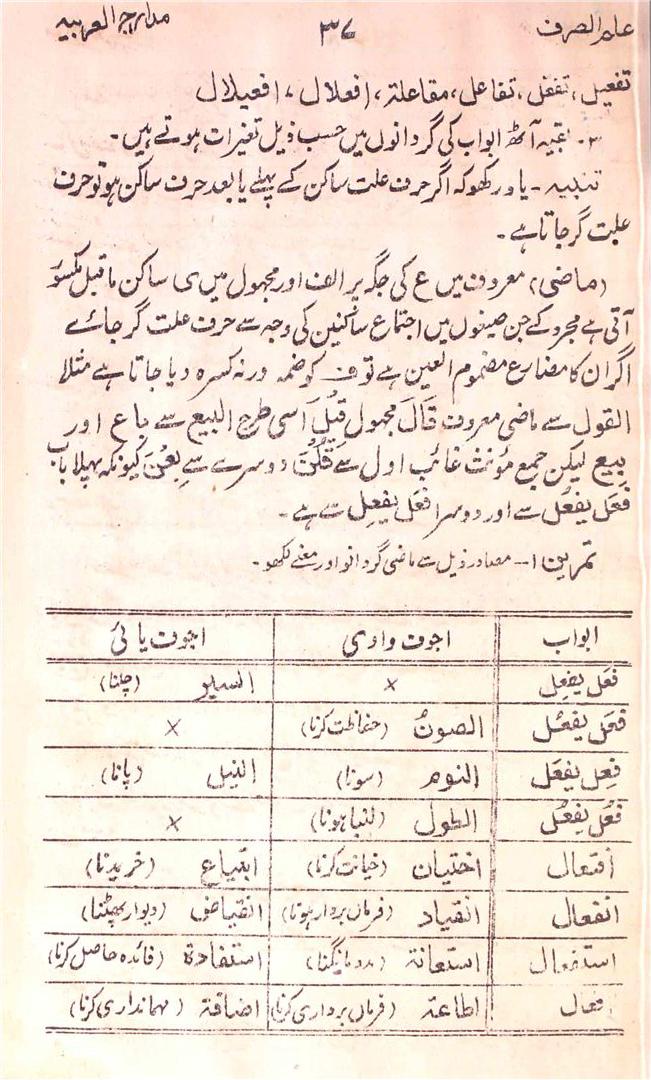 علم الصرف ٣٧ مدارج العربیہ
تفعیل، تفعّل، تفاعل، مفاعلۃ، افعلال، افعیلال
٣۔ بقیہ آٹھ ابواب کی گردانوں میں حسب ذیل تغیرات ہوتے ہیں۔
تنبیہ۔ یاد رکھو کہ اگر حرف علت ساکن کے پہلے یا بعد حرف ساکن ہو تو حرف
علت گر جاتا ہے۔
(ماضی) معروف میں ع کی جگہ پر الف اور مجہول میں ی ساکن ماقبل مکسور
آتی ہے مجرد کے جن صیغوں میں اجتماع ساکنین کی وجہ سے حرف علت گر جائے
اگر ان کا مضارع مضموم العین ہے تو ف کو ضمہ ورنہ کسرہ دیا جاتا ہے مثلا
القول سے ماضی معروف قَالَ مجہول قِیْلَ اسی طرح البیع سے باع اور
بِیع لیکن جمع مؤنث غائب اول سے قُلْنَ دوسرے سے بِعْنَ کیونکہ پہلا باب
فَعَلَ یَفْعُلُ سے اور دوسرا فَعَلَ یَفْعِلُ سے ہے۔
تمرین ١۔ مصادر ذیل سے ماضی گردانو اور معنے لکھو۔
ابواب | اجوف واوی | اجوف یائی
فَعَلَ یَفْعِلُ | × | السیر (چلنا)
فَعَلَ یَفْعُلُ | الصونُ (حفاظت کرنا) | ×
فَعِلَ یَفْعَلُ | النوم (سونا) | النیل (پانا)
فَعُلَ یَفْعُلُ | الطول (لنبا ہونا) | ×
افتعال | اختیان (خیانت کرنا) | ابتیاع (خریدنا)
انفعال | انقیاد (فرماں بردار ہونا) | انقیاض (دیوار پھٹنا)
استفعال | استعانۃ (مدد مانگنا) | استفادۃ (فائدہ حاصل کرنا)
افعال | اطاعۃ (فرماں برداری کرنا) | اضافۃ (مہمانداری کرنا)